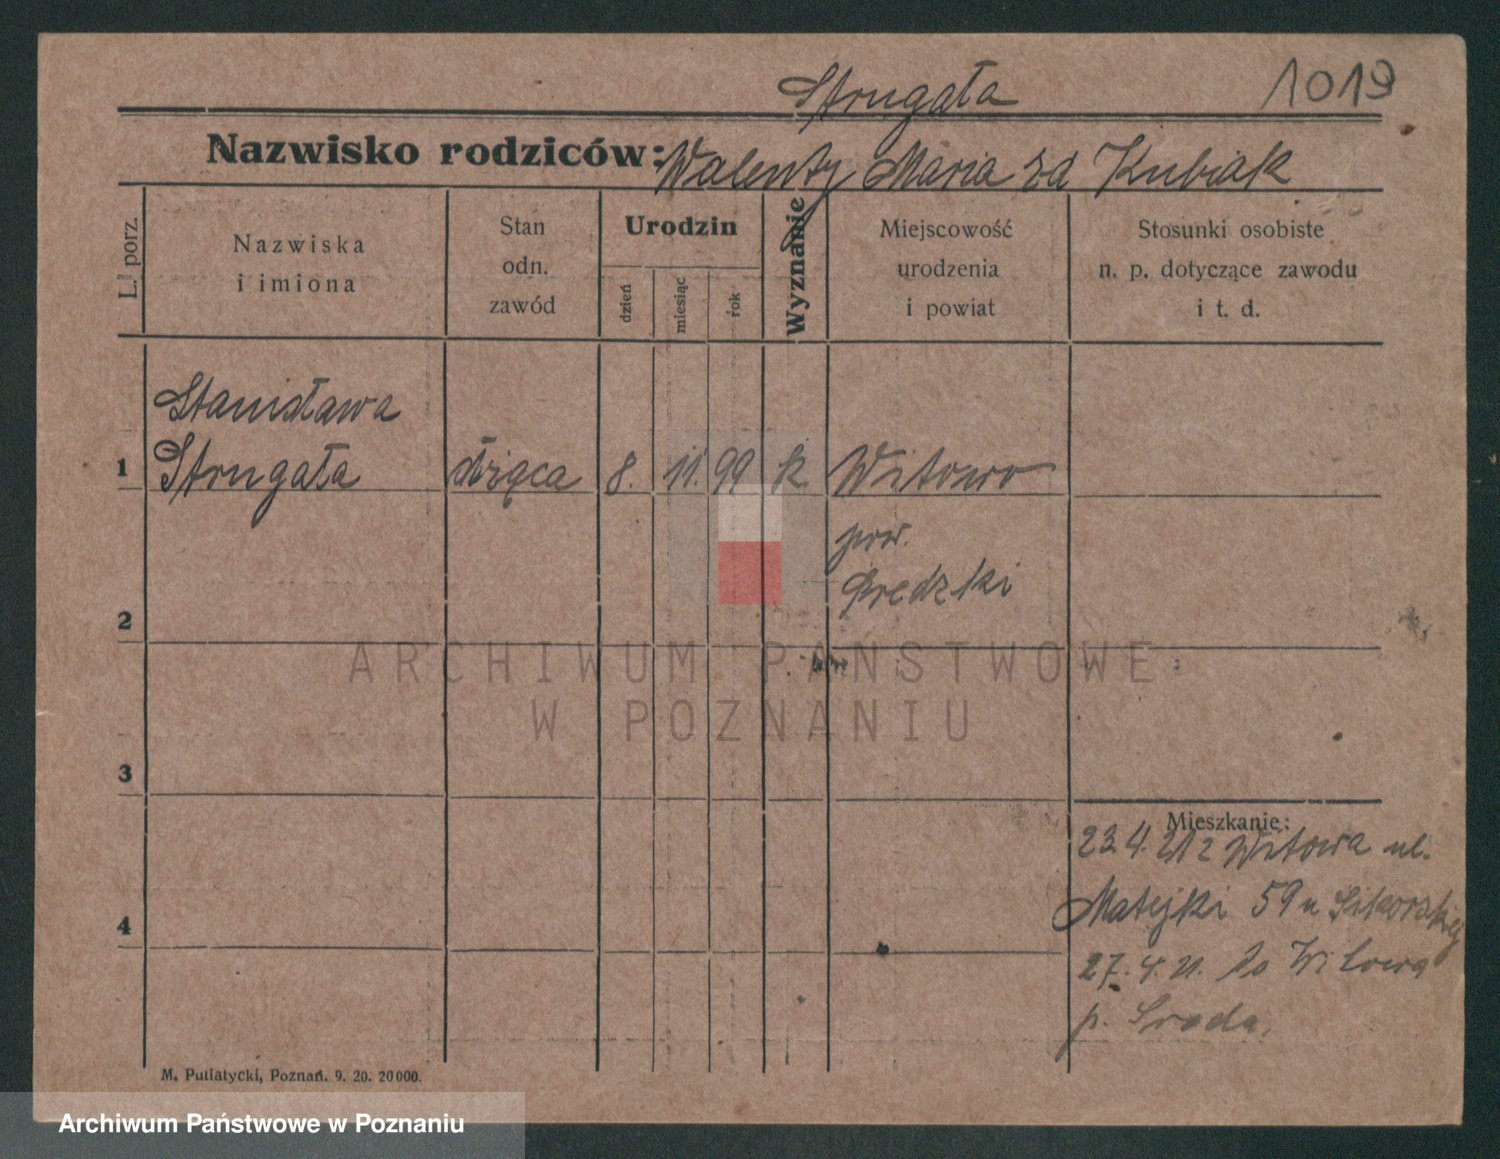 Strugała 1019
Nazwisko rodziców: Walenty Maria zd Kubiak
L. porz.
Nazwiska
i imiona
Stan
odn.
zawód
Urodzin
dzień
miesiąc
rok
Wyznanie
Miejscowość
urodzenia
i powiat
Stosunki osobiste
n. p. dotyczące zawodu
i t. d.
Stanisława
1 Strugała służąca 8. 11. 99 k. Witowo
pow.
Średzki
2
ARCHIWUM PAŃSTWOWE
W POZNANIU
3
Mieszkanie:
23.4.21 z Witowa ul.
Matejki 59 u Sikorskiej
4
27.4.21. do Witowa
p. Sroda.
M. Putiatycki, Poznań. 9. 20. 20000.
Archiwum Państwowe w Poznaniu